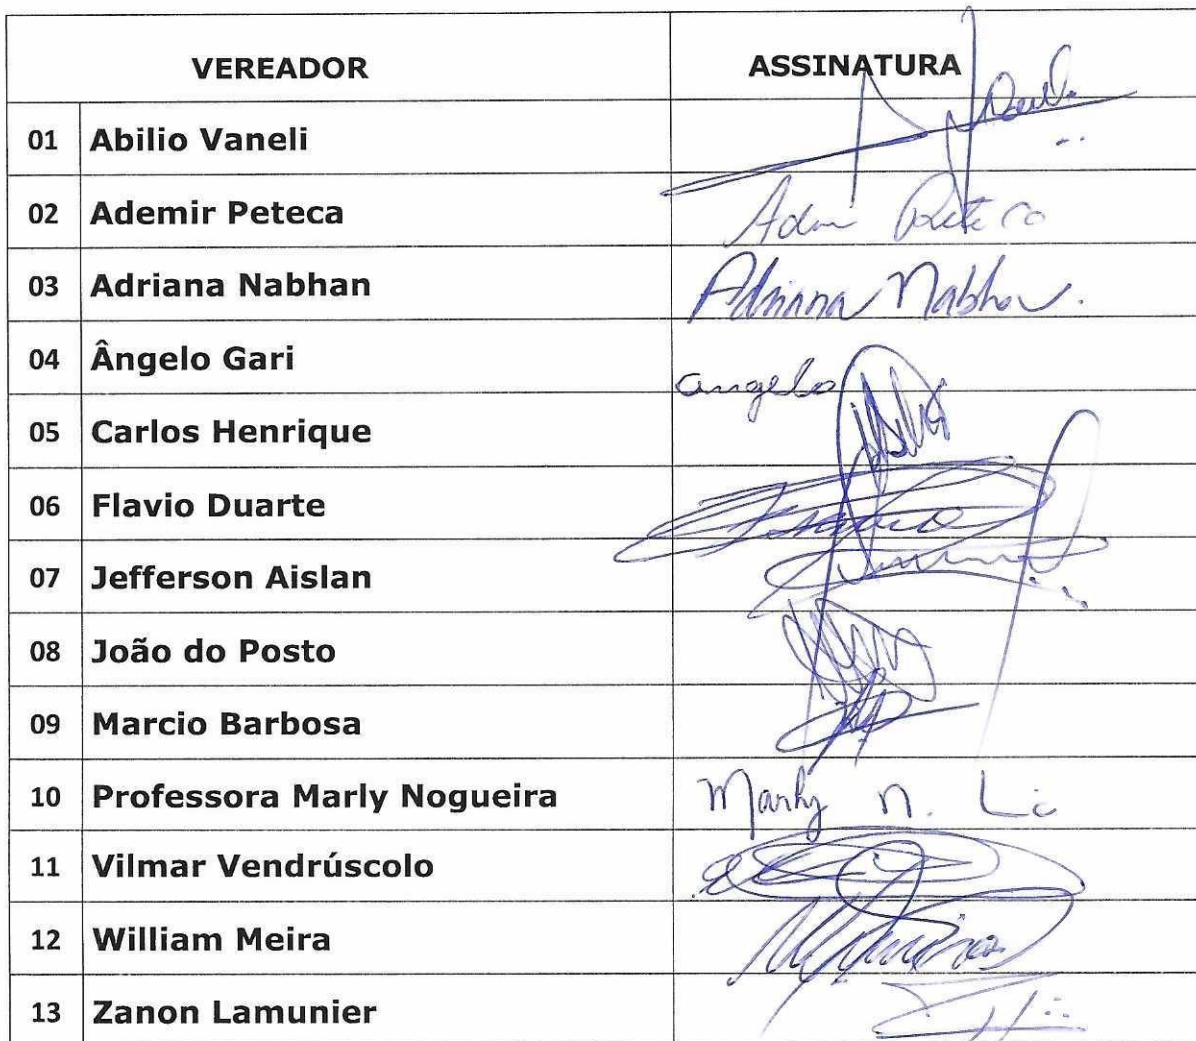 VEREADOR ASSINATURA
01 Abilio Vaneli
02 Ademir Peteca
03 Adriana Nabhan Adriana Nabhan.
04 Ângelo Gari angelo
05 Carlos Henrique
06 Flavio Duarte
07 Jefferson Aislan
08 João do Posto
09 Marcio Barbosa
10 Professora Marly Nogueira Marly N.
11 Vilmar Vendrúscolo
12 William Meira
13 Zanon Lamunier